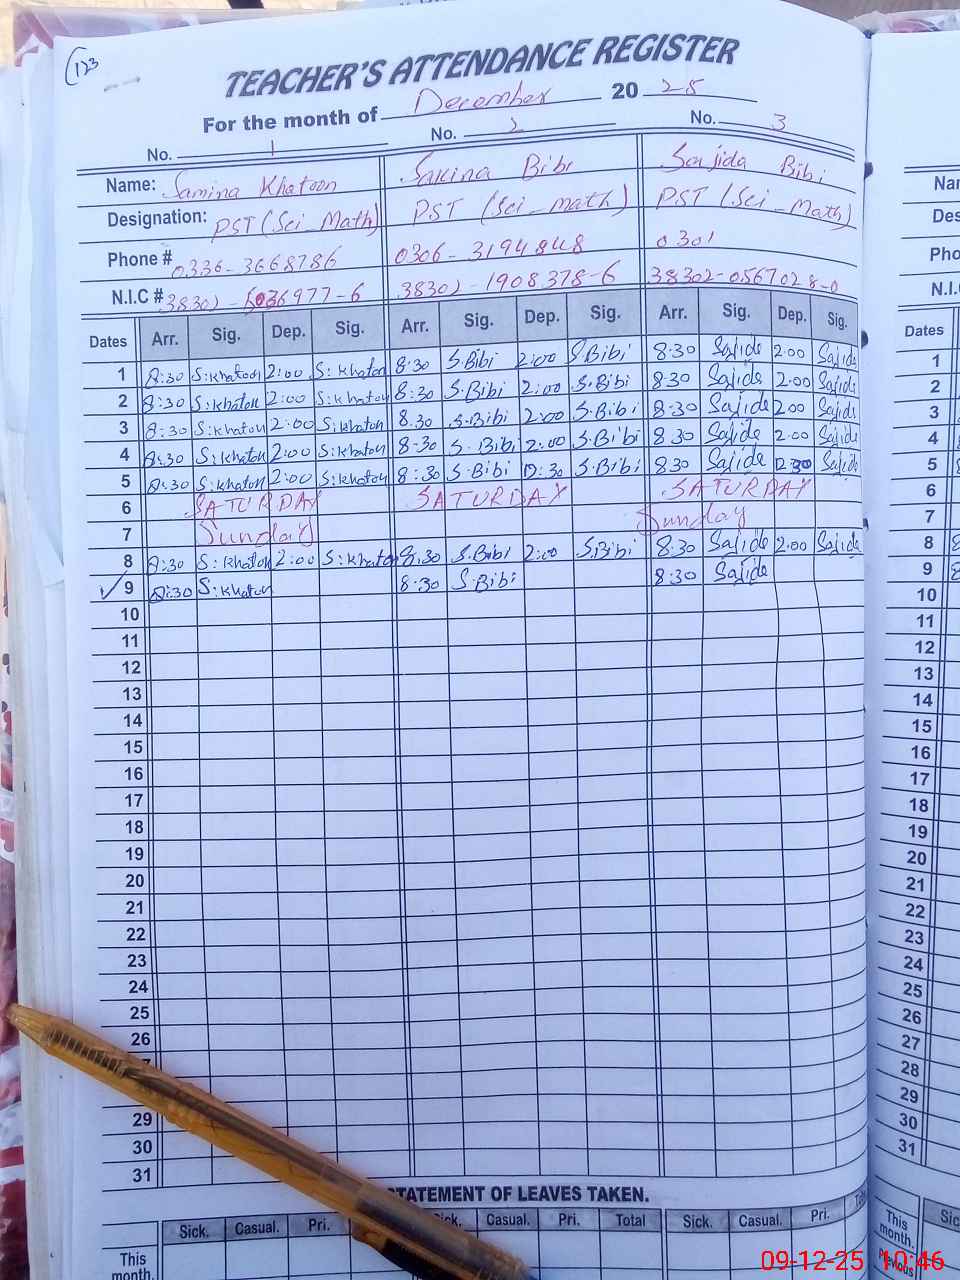 123
TEACHER'S ATTENDANCE REGISTER
For the month of December 2025
No. 1 No. 2 No. 3
Name: Samina Khatoon Sakina Bibi Sajida Bibi
Designation: PST (Sci _ Math) PST (Sci _ math) PST (Sci _ Math)
Phone # 0336-3668786 0306-3194848 0301
N.I.C # 38302-5036977-6 38302-1908378-6 38302-0567028-0
Dates Arr. Sig. Dep. Sig. Arr. Sig. Dep. Sig. Arr. Sig. Dep. Sig.
1 8:30 S:khatoon 2:00 S:khaton 8:30 S.Bibi 2:00 S.Bibi 8:30 Sajida 2:00 Sajida
2 8:30 S:khaton 2:00 S:khaton 8:30 S.Bibi 2:00 S.Bibi 8:30 Sajida 2:00 Sajida
3 8:30 S:khaton 2:00 S:khaton 8.30 S.Bibi 2:00 S.Bibi 8:30 Sajida 2:00 Sajida
4 8:30 S:khaton 2:00 S:khaton 8:30 S.Bibi 2:00 S.Bibi 8:30 Sajida 2:00 Sajida
5 8:30 S:khaton 2:00 S:khaton 8:30 S.Bibi 12:30 S.Bibi 8:30 Sajida 12:30 Sajida
6 SATURDAY SATURDAY SATURDAY
7 Sunday Sunday
8 8:30 S:khaton 2:00 S:khaton 8:30 S.Bibi 2:00 S.Bibi 8:30 Sajida 2:00 Sajida
9 8:30 S:khaton 8:30 S.Bibi 8:30 Sajida
10
11
12
13
14
15
16
17
18
19
20
21
22
23
24
25
26
29
30
31
STATEMENT OF LEAVES TAKEN.
Sick. Casual. Pri. Sick. Casual. Pri. Total Sick. Casual. Pri.
This month.
Nar
Des
Pho
N.I.
Dates
1
2
3
4
5
6
7
8
9
10
11
12
13
14
15
16
17
18
19
20
21
22
23
24
25
26
27
28
29
30
31
This month.
Previous
Sic
09-12-25 10:46